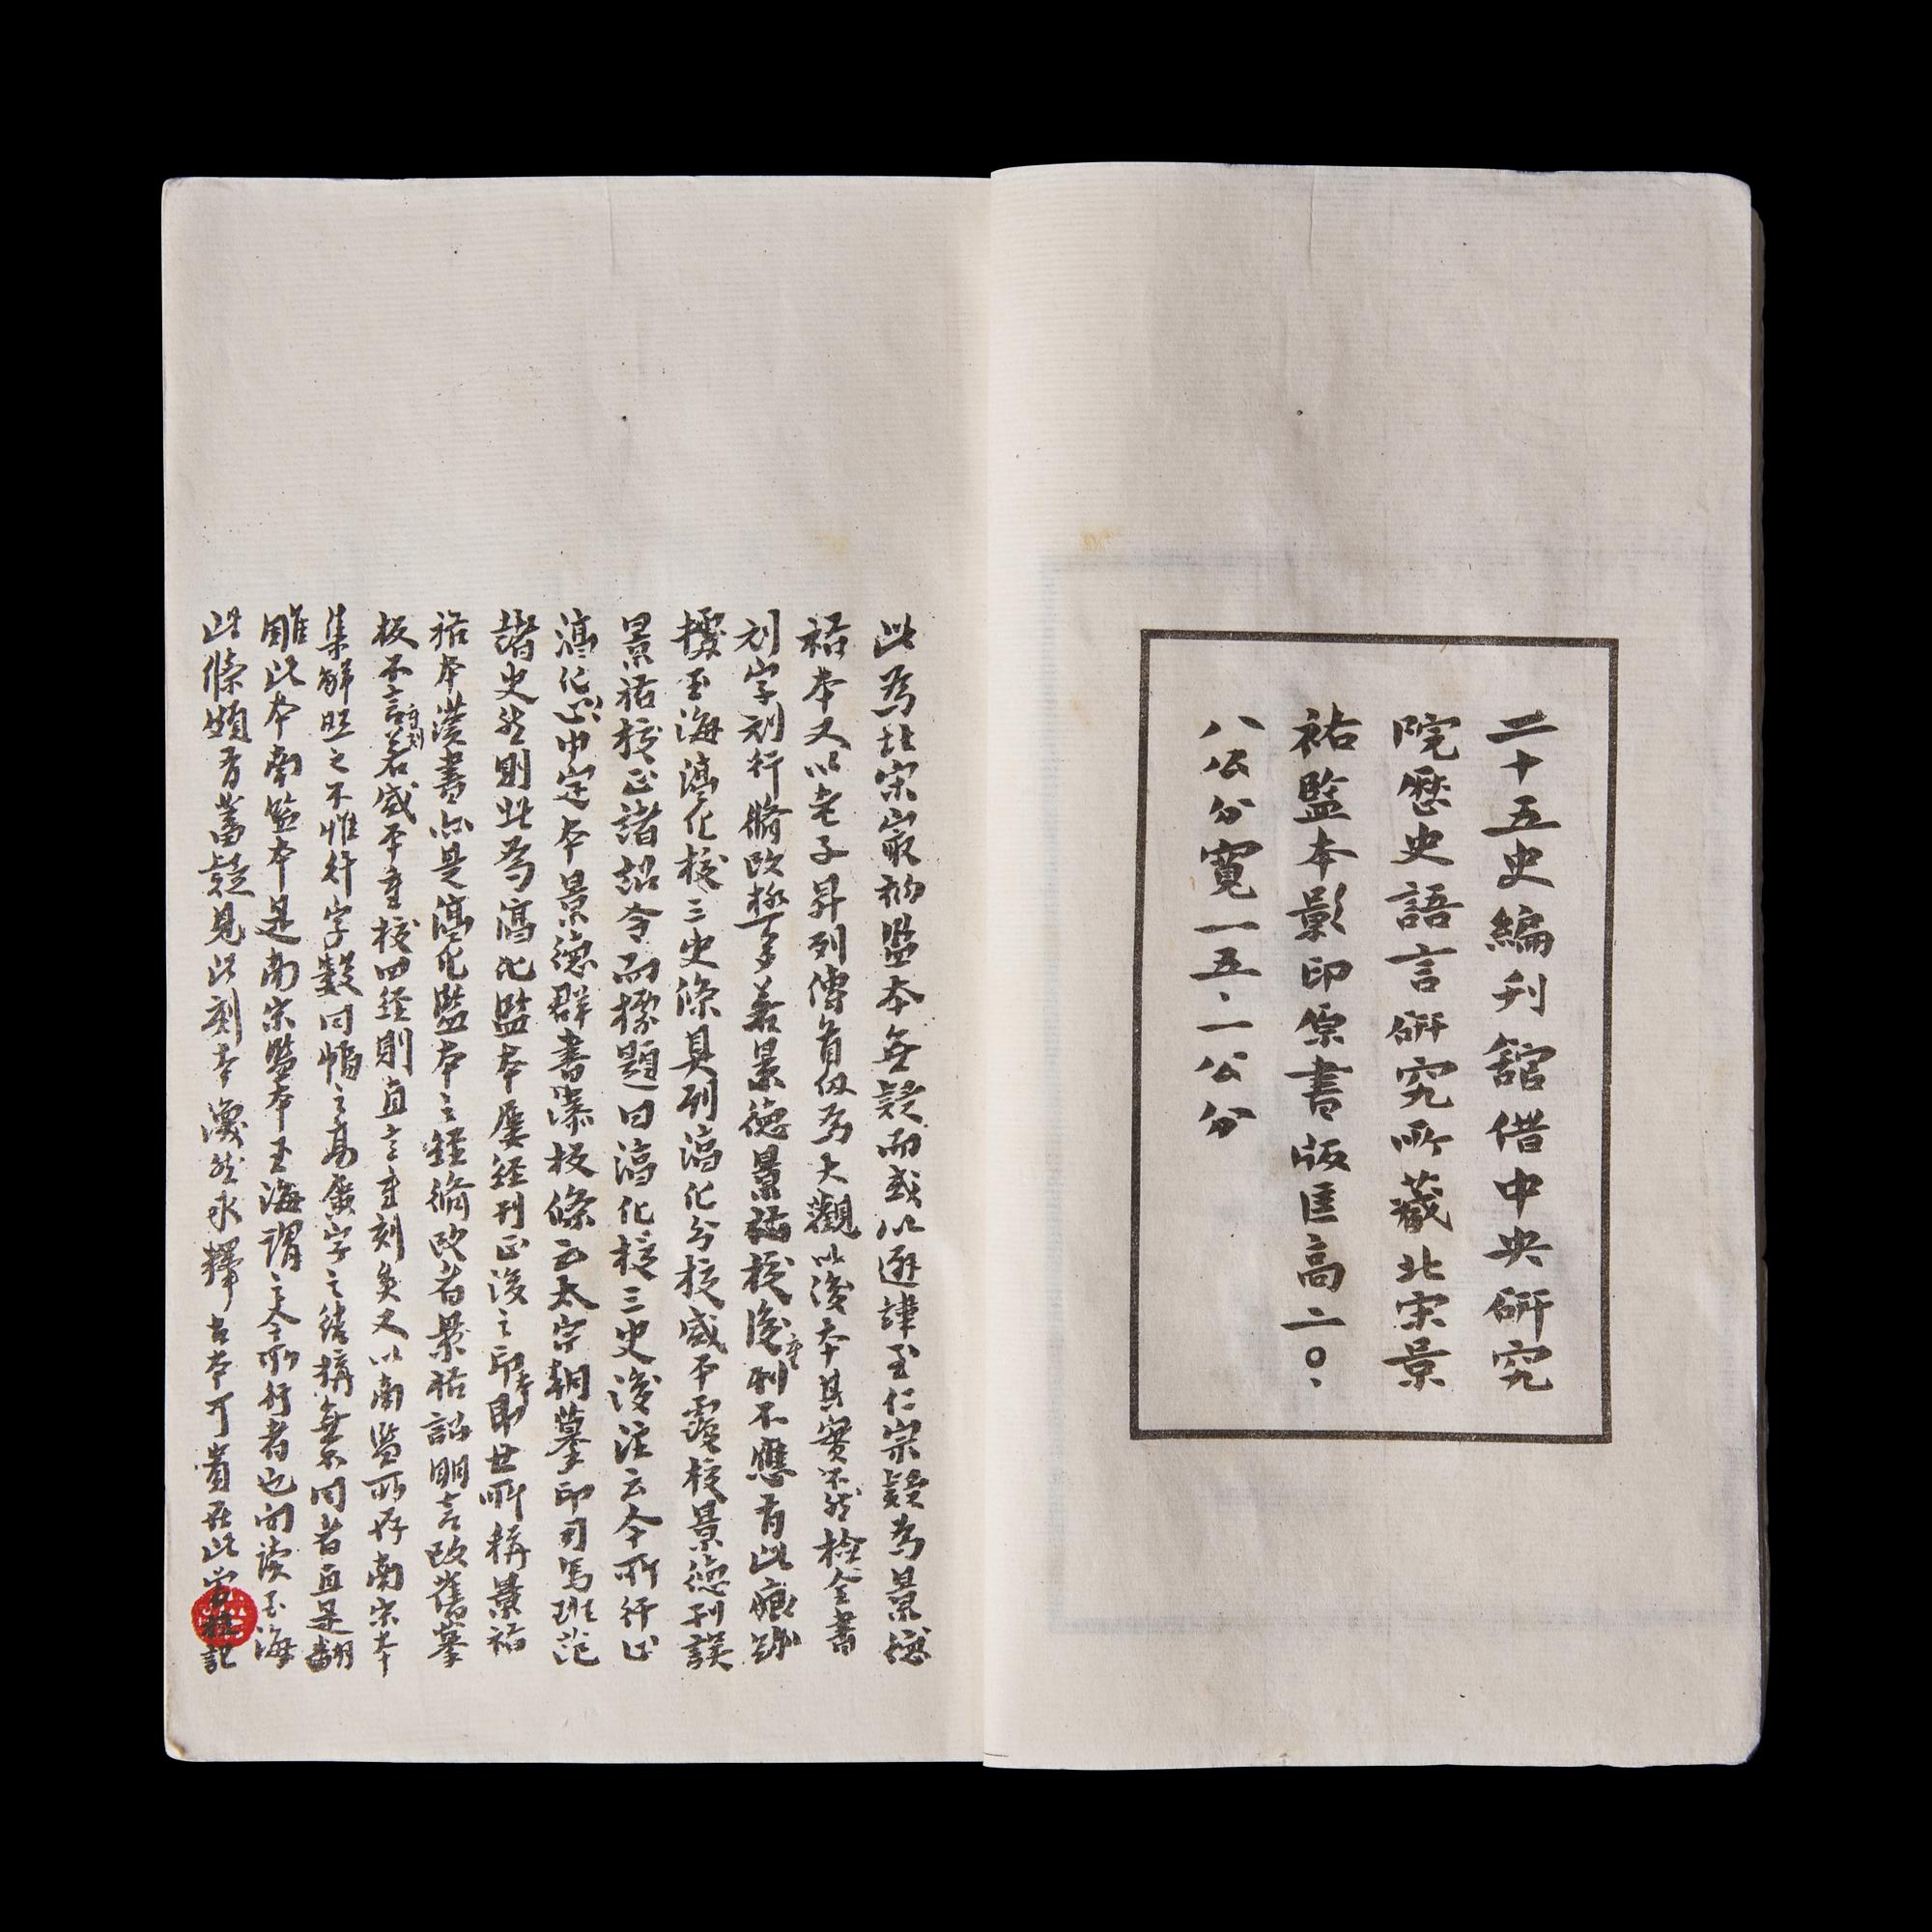 二十五史編刋舘借中央硏究
院歷史語言硏究所藏北宋景
祐監本影印原書版匡高二〇.
八公分寬一五.一公分
此為北宋最初監本無疑而或以避諱至仁宗疑為景德
祐本又以老子昇列傳首仅為大觀以後本其實不然檢全書
刻字刻行脩改極多若景德景祐校後重刊不應有此痕跡
據玉海淳化校三史條具列淳化分校咸平覆校景德刊誤
景祐校正諸詔令而標題曰淳化校三史後注云今所行止
淳化中定本景德群書漆板條云太宗朝摹印司馬班范
諸史然則此為淳化監本屢經刊正後之印本即世所稱景祐
祐本漢書亦是淳化監本之經脩改者景祐詔明言改舊摹
板不言重刻若咸平重校四經則直言重刻矣又以南監所存南宋本
集解照之不惟行字數同幅之高廣字之結構無不同者直是翻
雕此本南監本是南宋監本玉海謂之今所行者也向讀玉海
此條頗有蓄疑見此刻本渙然冰釋古本可貴在此 記